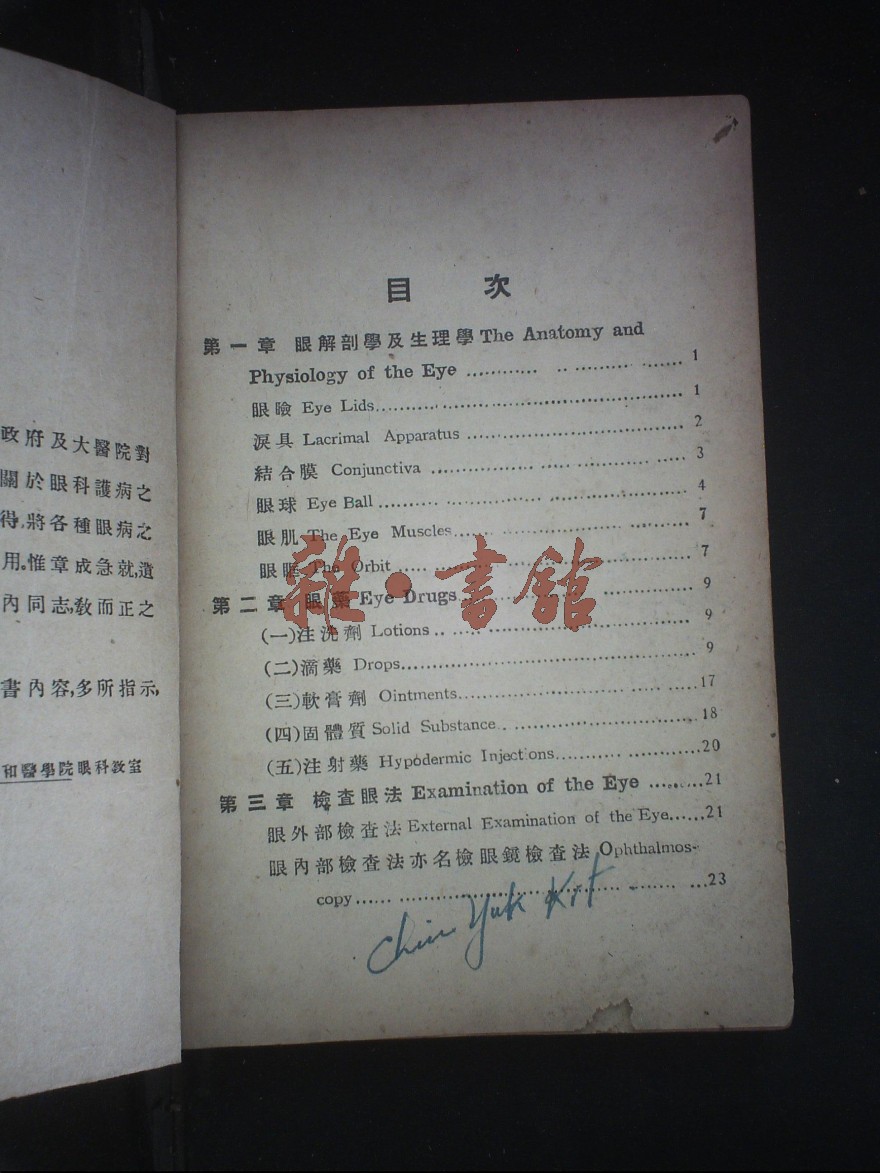 政府及大醫院對
關於眼科護病之
得,將各種眼病之
用。惟章成急就,遺
內同志,教而正之
書內容,多所指示,
和醫學院眼科教室
目 次
第一章 眼解剖學及生理學 The Anatomy and
Physiology of the Eye ............ .. .................... 1
眼瞼 Eye Lids................................................ 1
淚具 Lacrimal Apparatus ................................. 2
結合膜 Conjunctiva ....................................... 3
眼球 Eye Ball ................................................ 4
眼肌 The Eye Muscles.................................... 7
眼眶 The Orbit ............................................. 7
第二章 眼藥 Eye Drugs.................................... 9
(一)注洗劑 Lotions ....................................... 9
(二)滴藥 Drops............................................. 9
(三)軟膏劑 Ointments....................................17
(四)固體質 Solid Substance..............................18
(五)注射藥 Hypodermic Injections.....................20
第三章 檢查眼法 Examination of the Eye .........21
眼外部檢查法 External Examination of the Eye......21
眼內部檢查法亦名檢眼鏡檢查法 Ophthalmos-
copy......................................................23
Chiu Yuk Kit
雜·書館